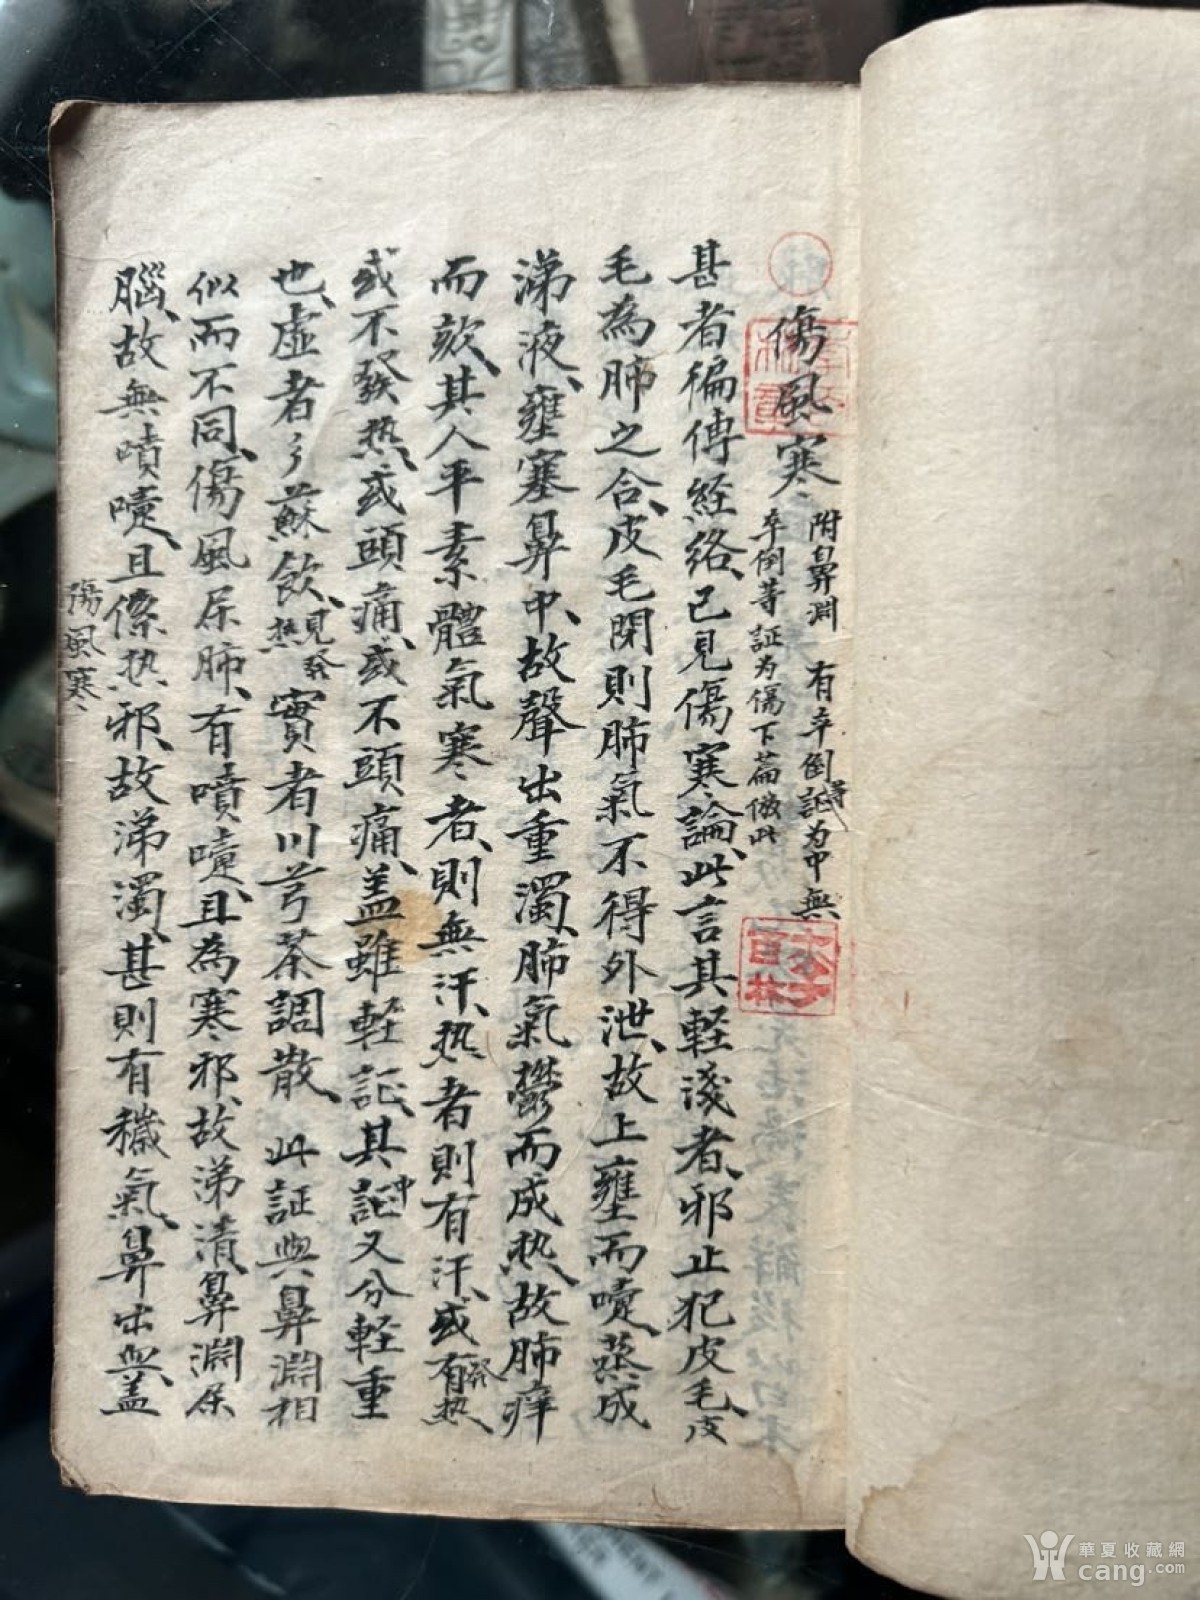 傷風寒
附鼻淵 有卒倒等証为中無
卒倒等証为傷下篇倣此
甚者徧傳経絡、已見傷寒論、此言其軽淺者、邪止犯皮毛、皮
毛為肺之合、皮毛閉則肺氣不得外泄、故上壅而嚏、蒸成
涕液、壅塞鼻中、故聲出重濁、肺氣鬱而成热、故肺痒
而欬、其人平素體氣寒者、則無汗、热者則有汗、或有發热、
或不發热、或頭痛、或不頭痛、盖雖軽証、其証中又分軽重
也、虛者弓蘇飲、見發热 實者川芎茶調散 此証與鼻淵相
似而不同、傷風屬肺、有噴嚏、且為寒邪、故涕清、鼻淵屬
腦、故無噴嚏、且係热邪、故涕濁、甚則有穢氣、鼻出血、盖
傷風寒
華夏收藏網
cang.com